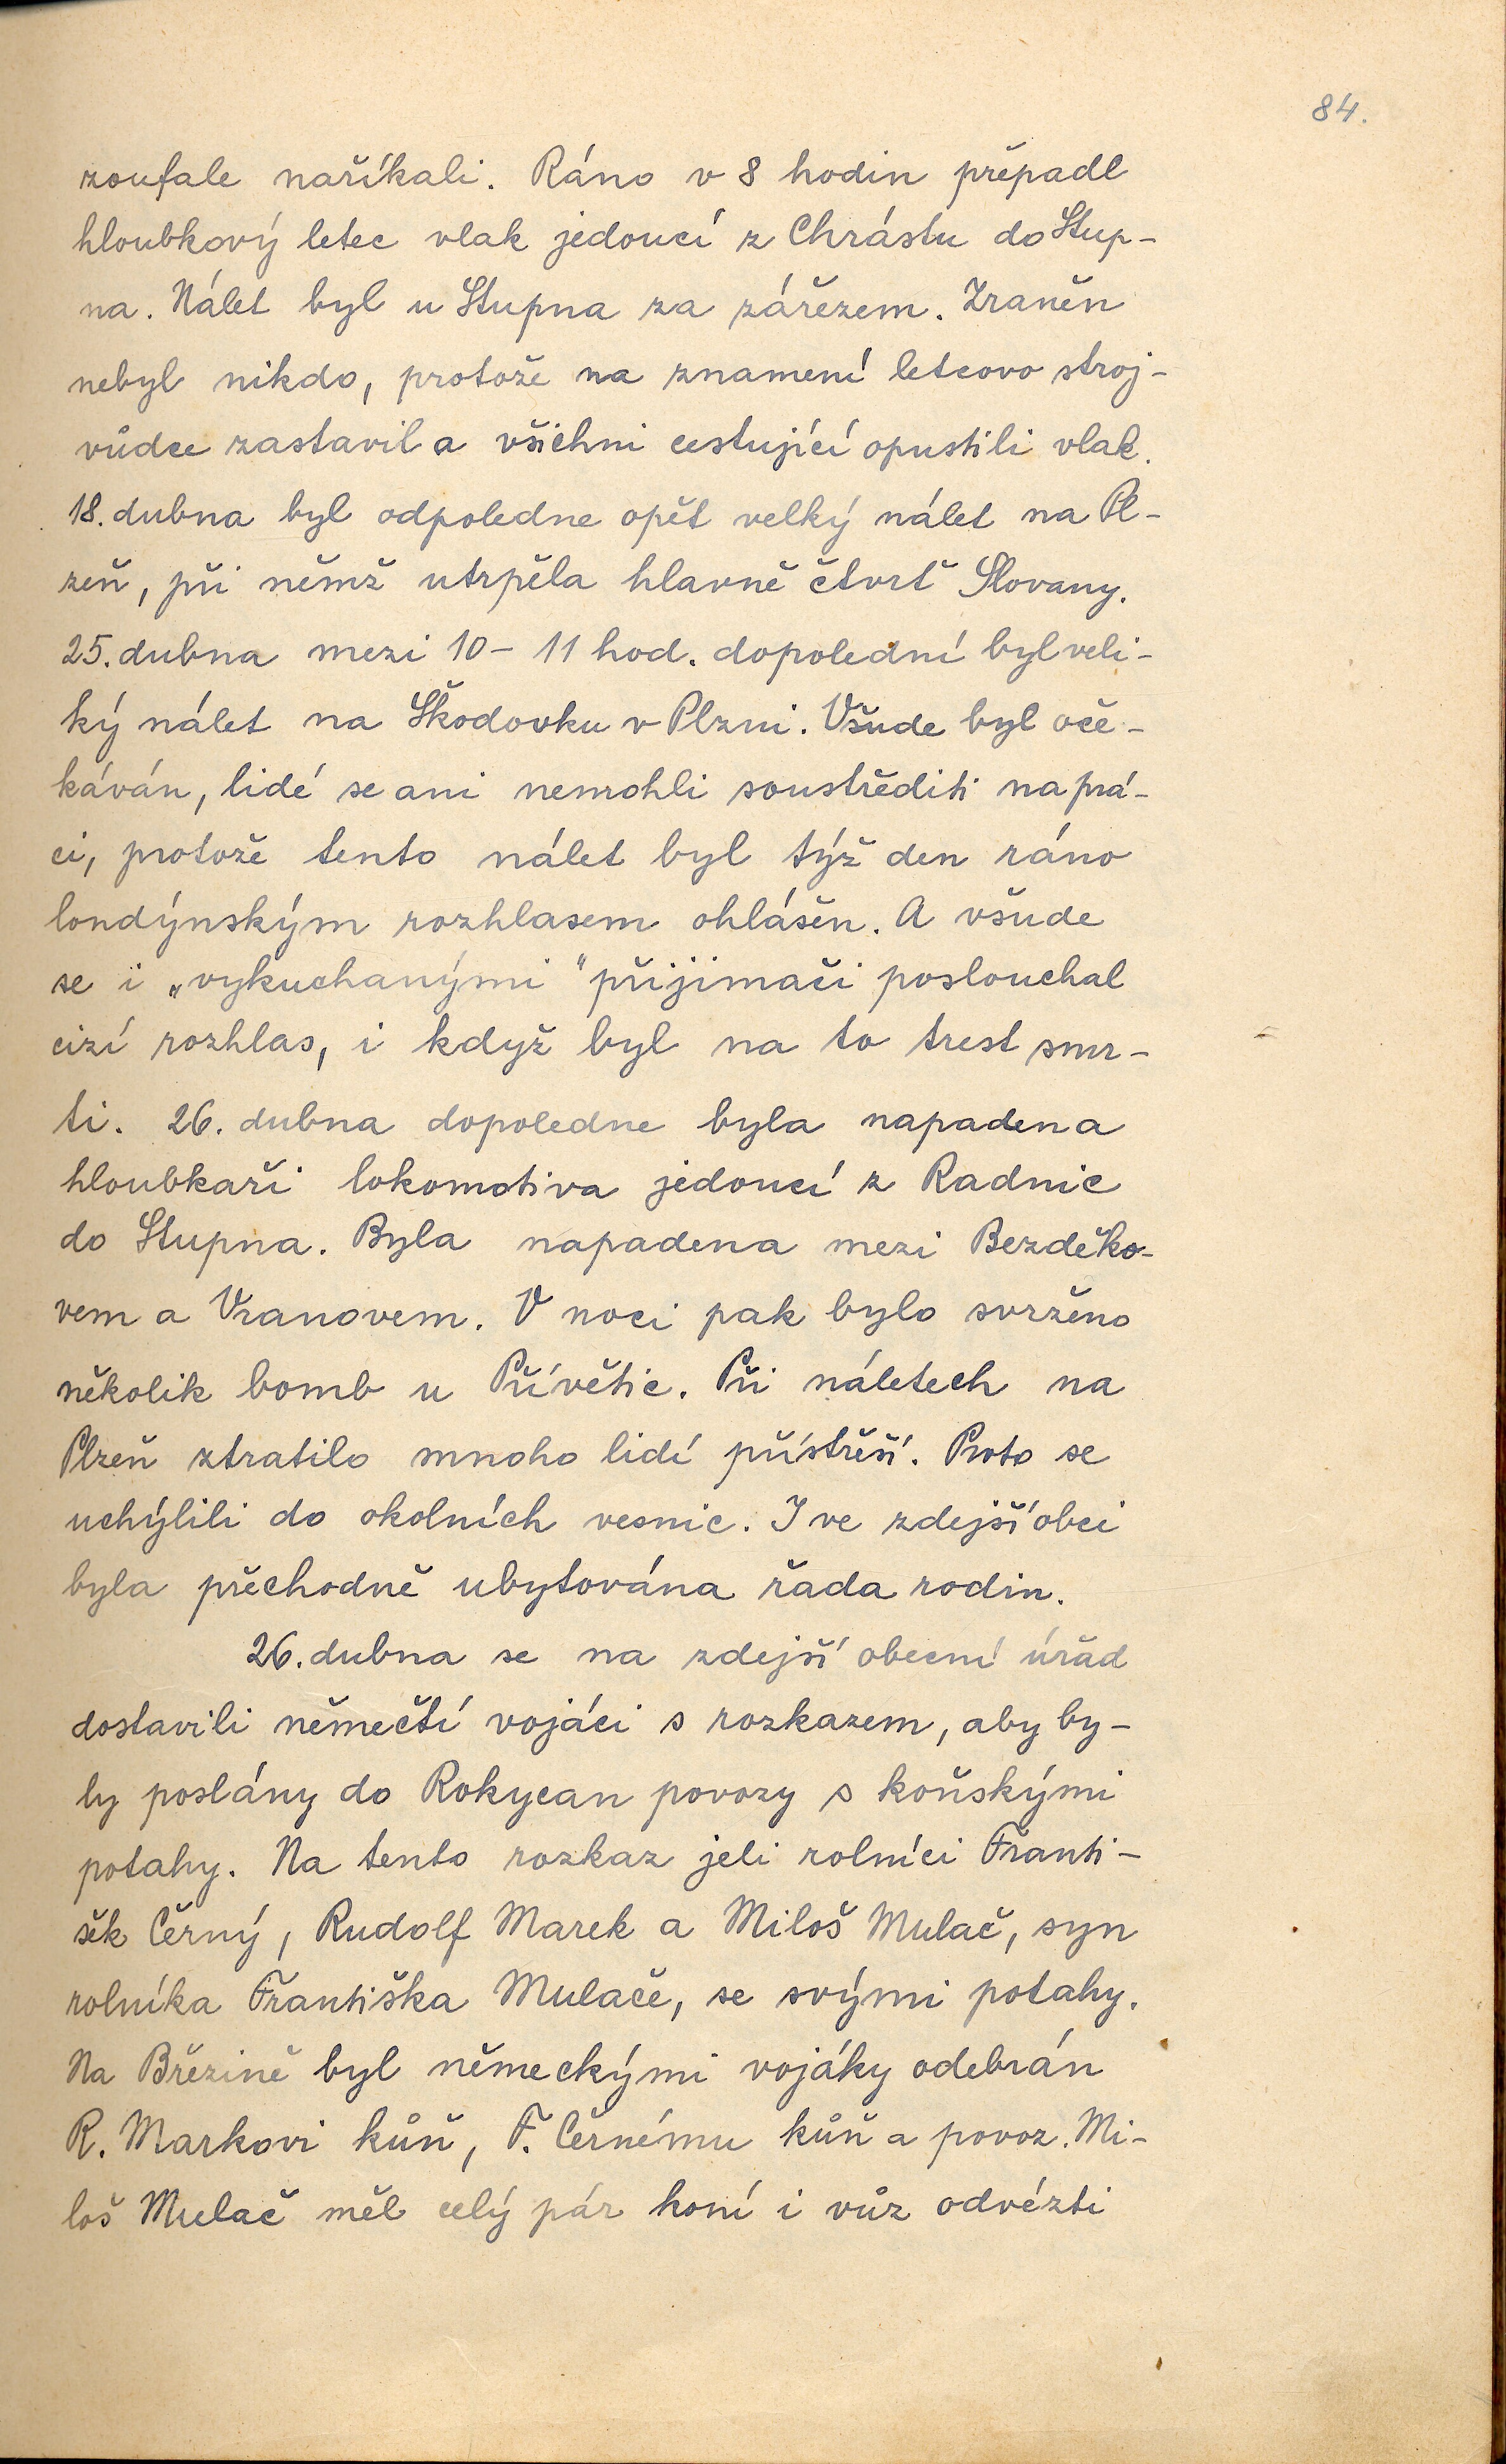 84.
zoufale naříkali. Ráno v 8 hodin přepadl
hloubkový letec vlak jedoucí z Chrástu do Stup-
na. Nálet byl u Stupna za zářezem. Zraněn
nebyl nikdo, protože na znamení letcovo stroj-
vůdce zastavil a všichni cestující opustili vlak.
18. dubna byl odpoledne opět velký nálet na Pl-
zeň, při němž utrpěla hlavně čtvrť Slovany.
25. dubna mezi 10 - 11 hod. dopolední byl veli-
ký nálet na Škodovku v Plzni. Všude byl oče-
káván, lidé se ani nemohli soustřediti na prá-
ci, protože tento nálet byl týž den ráno
londýnským rozhlasem ohlášen. A všude
se i „vykuchanými" přijimači poslouchal
cizí rozhlas, i když byl na to trest smr-
ti. 26. dubna dopoledne byla napadena
hloubkaři lokomotiva jedoucí z Radnic
do Stupna. Byla napadena mezi Bezděko-
vem a Vranovem. V noci pak bylo svrženo
několik bomb u Přívětic. Při náletech na
Plzeň ztratilo mnoho lidí přístřeší. Proto se
uchýlili do okolních vesnic. I ve zdejší obci
byla přechodně ubytována řada rodin.
26. dubna se na zdejší obecní úřad
dostavili němečtí vojáci s rozkazem, aby by-
ly poslány do Rokycan povozy s koňskými
potahy. Na tento rozkaz jeli rolníci Franti-
šek Černý, Rudolf Marek a Miloš Mulač, syn
rolníka Františka Mulače, se svými potahy.
Na Březině byl německými vojáky odebrán
R. Markovi kůň, F. Černému kůň a povoz. Mi-
loš Mulač měl celý pár koní i vůz odvézti